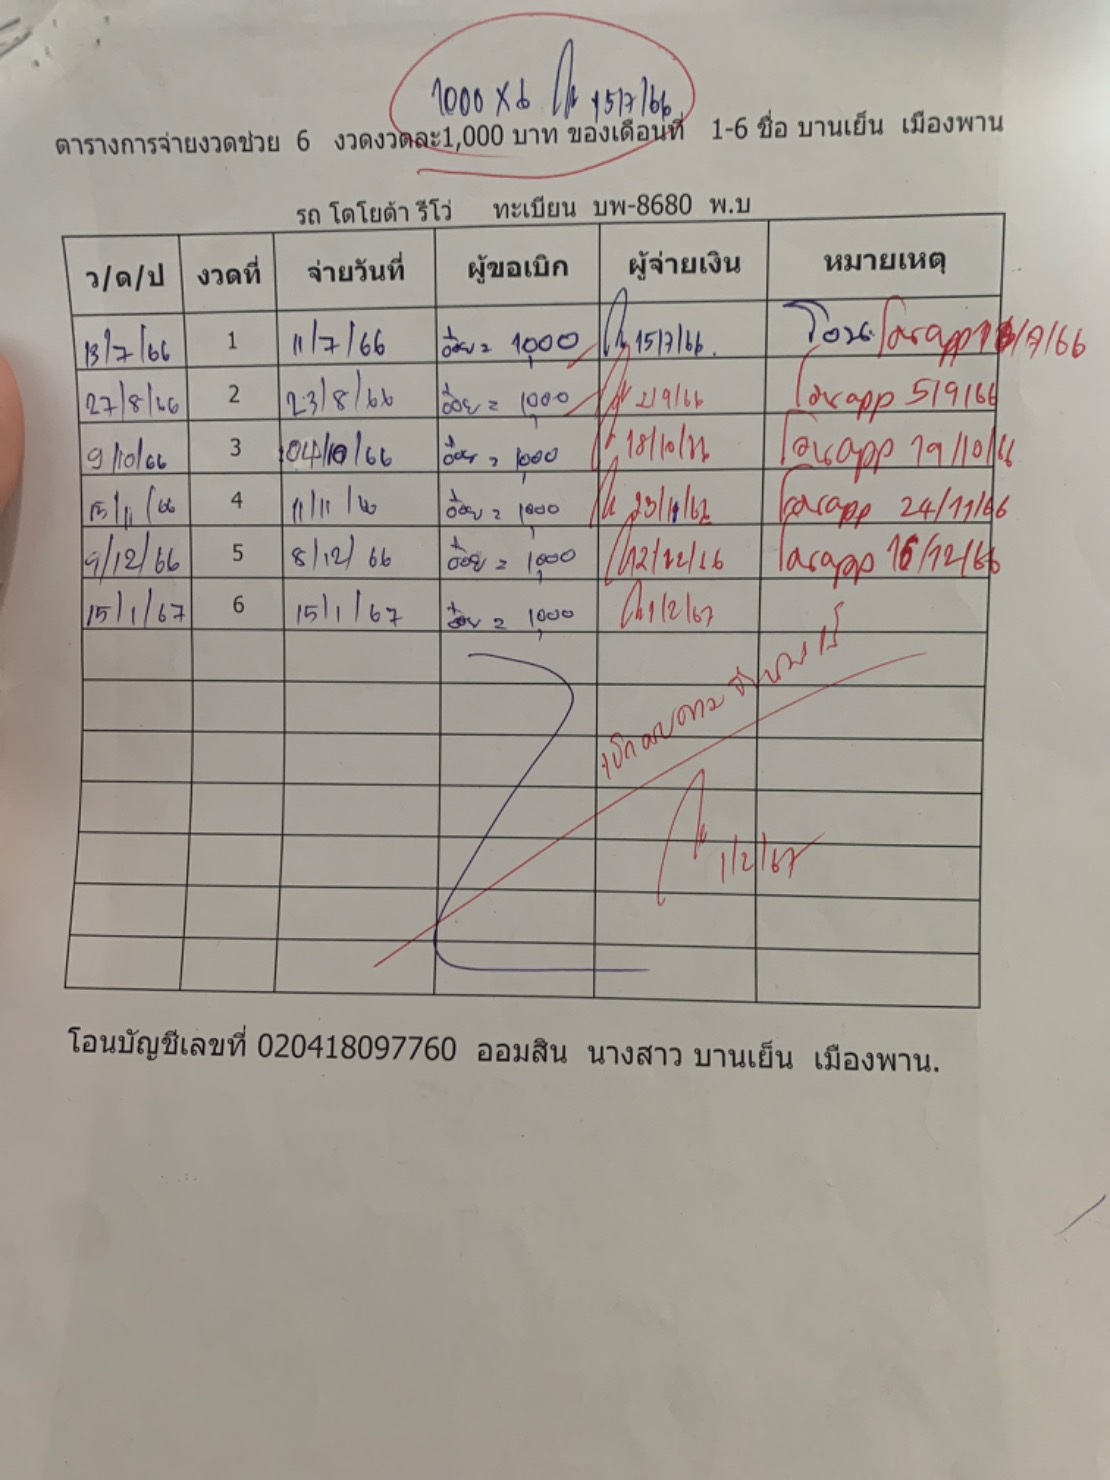 1000 x 6 15/7/66
ตารางการจ่ายงวดช่วย 6 งวดงวดละ1,000 บาท ของเดือนที่ 1-6 ชื่อ บานเย็น เมืองพาน
รถ โตโยต้า รีโว่ ทะเบียน บพ-8680 พ.บ
ว/ด/ป งวดที่ จ่ายวันที่ ผู้ขอเบิก ผู้จ่ายเงิน หมายเหตุ
13/7/66 1 11/7/66 อ้อย = 1,000 15/7/66. โอน
27/8/66 2 23/8/66 อ้อย = 1,000 2/9/66 โอนapp 5/9/66
9/10/66 3 04/10/66 อ้อย = 1,000 18/10/66 โอนapp 19/10/66
15/11/66 4 11/11/66 อ้อย = 1,000 23/11/66 โอนapp 24/11/66
9/12/66 5 8/12/66 อ้อย = 1,000 12/12/66 โอนapp 16/12/66
15/1/67 6 15/1/67 อ้อย = 1,000 1/2/67
1/2/67
โอนบัญชีเลขที่ 020418097760 ออมสิน นางสาว บานเย็น เมืองพาน.